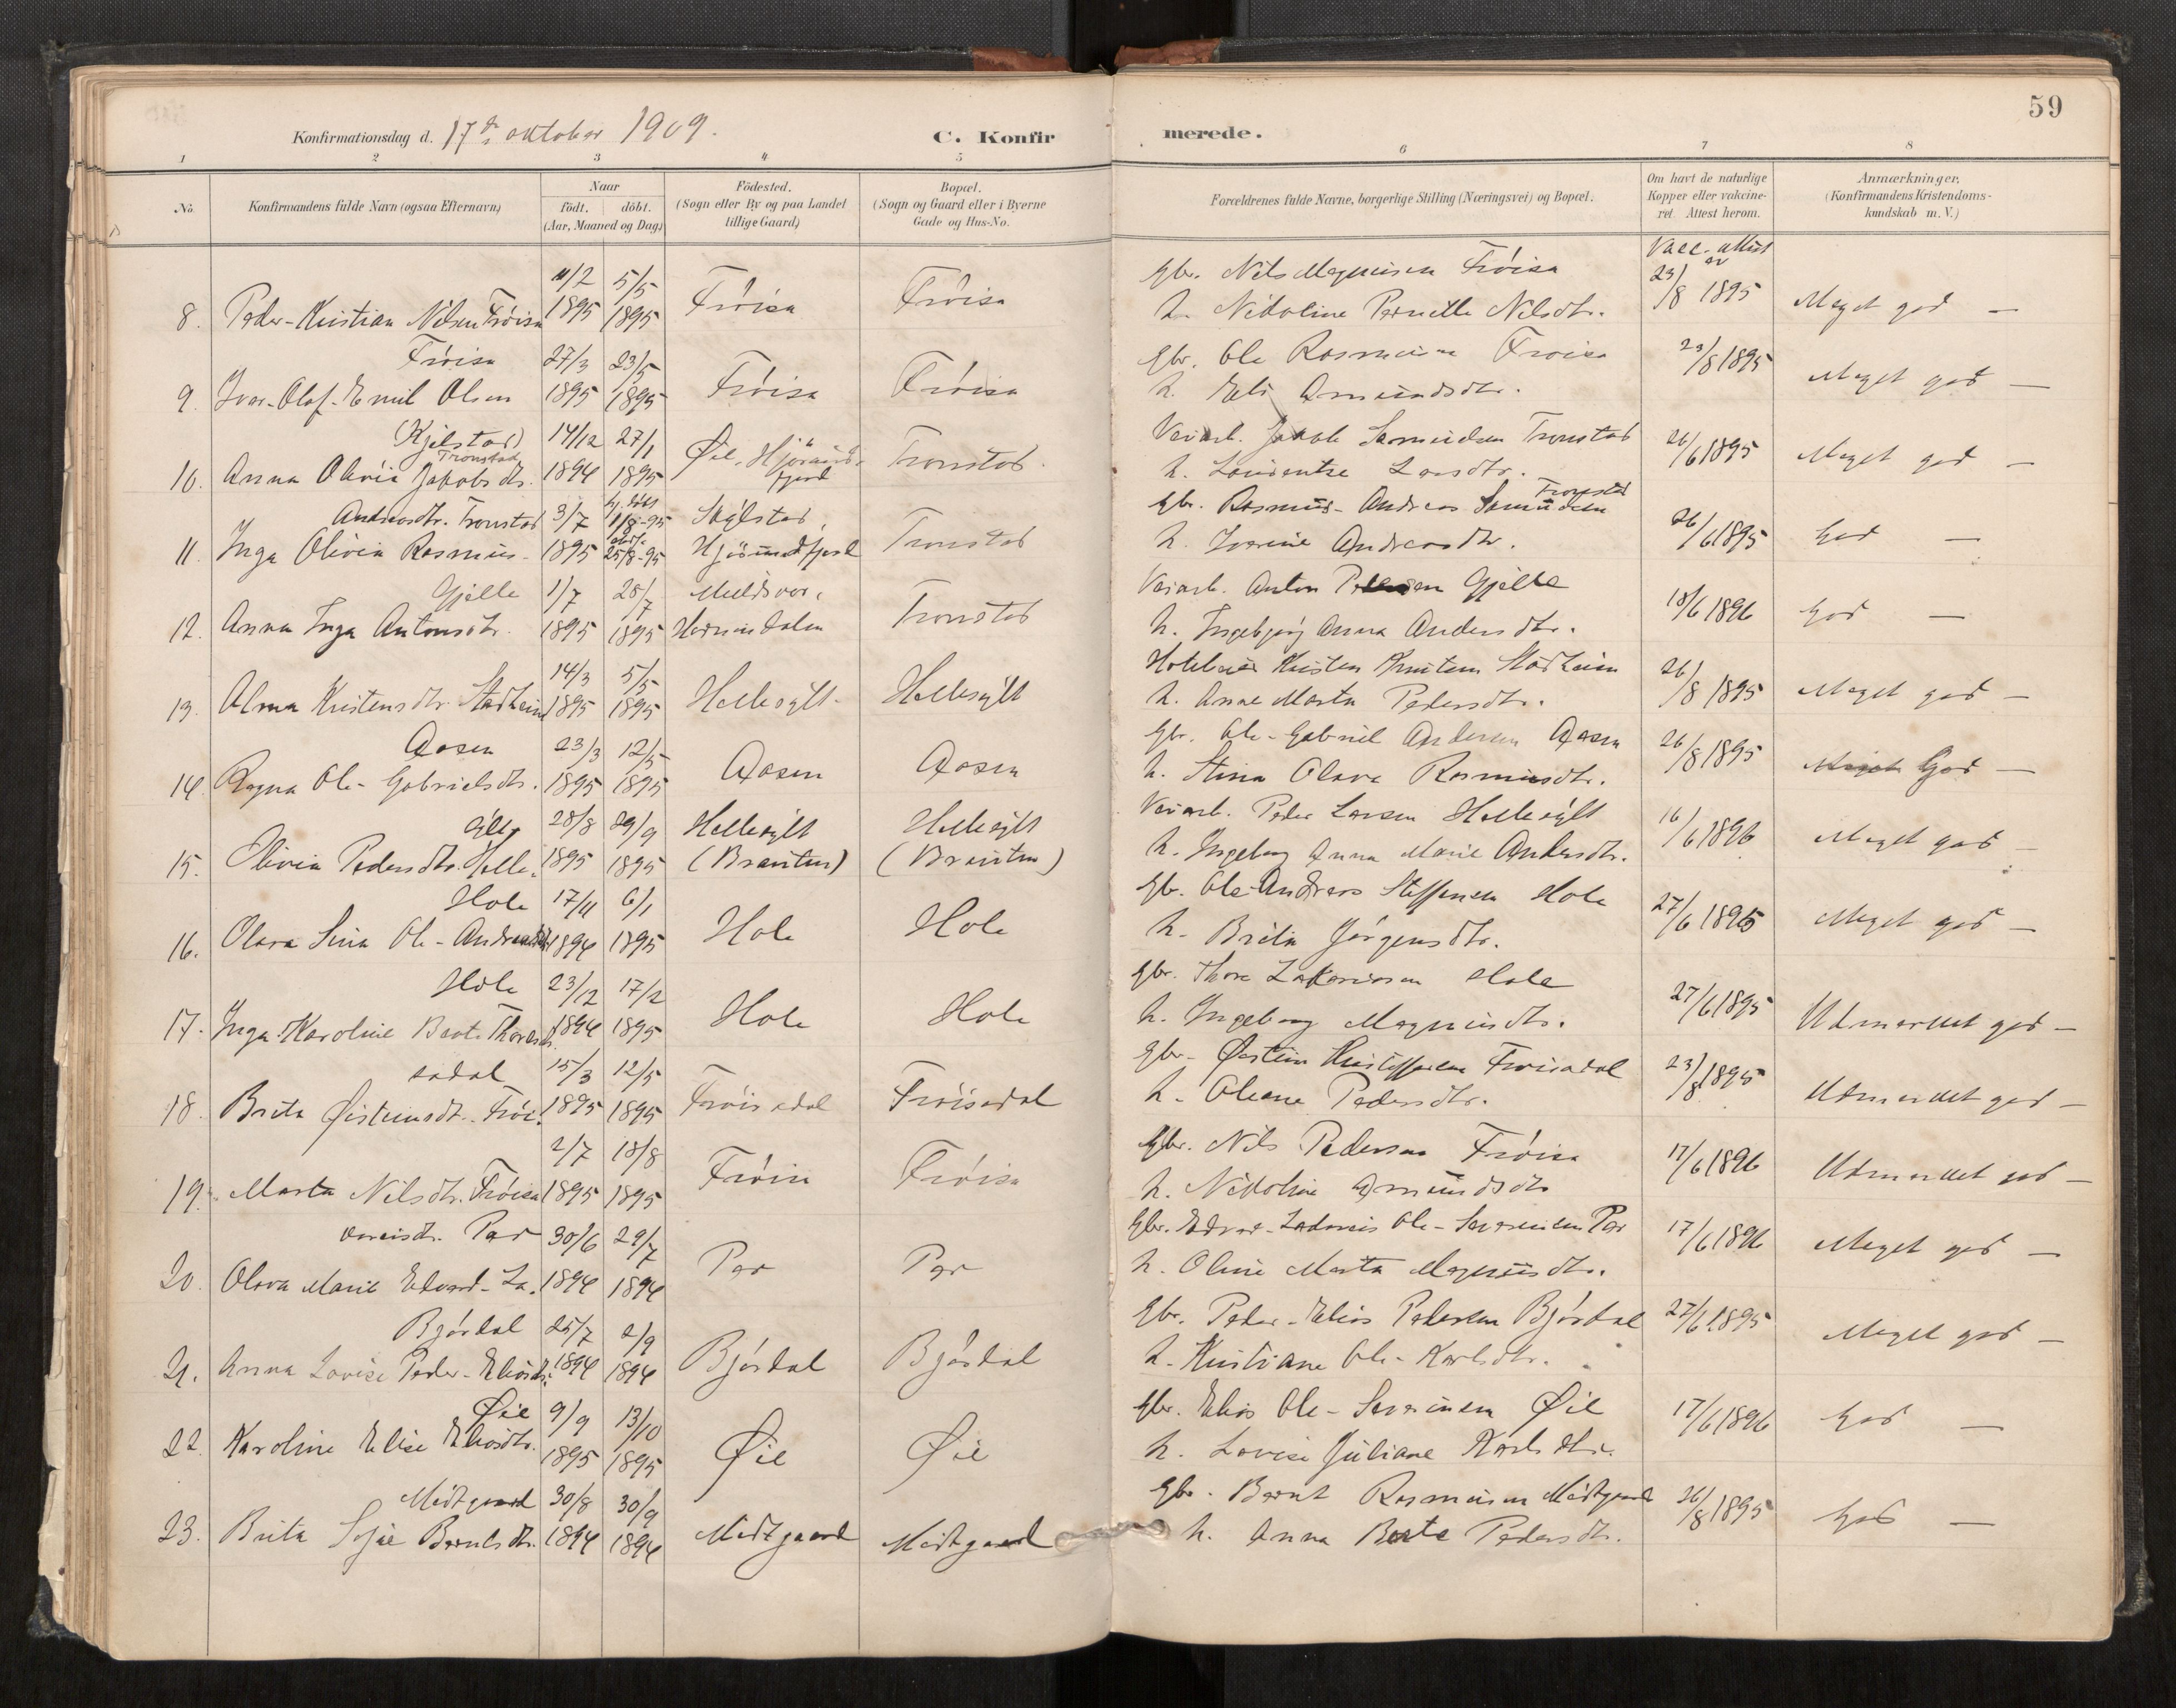 59
Konfirmationsdag d. 17de oktober 1909.
C. Konfirmerede.
1 2 3 4 5 6 7 8
No.
Konfirmandens fulde Navn (ogsaa Efternavn)
Naar
födt. döbt.
(Aar, Maaned og Dag)
Födested.
(Sogn eller By og paa Landet
tillige Gaard)
Bopæl.
(Sogn og Gaard eller i Byerne
Gade og Hus-No.
Forældrenes fulde Navne, borgerlige Stilling (Næringsvei) og Bopæl.
Om havt de naturlige
Kopper eller vakcine-
ret. Attest herom.
Anmærkninger,
(Konfirmandens Kristendoms-
kundskab m. V.)
Vacc. attest av
4/2 5/5 Gbr. Nils Magnusen Frøisa 23/8 1895
8. Peder-Kristian Nilsen Frøisa 1895 1895 Frøisa Frøisa h. Nikoline Pernille Nilsdtr. Meget god —
Frøisa 27/3 23/5 Gbr. Ole Rasmusen Frøisa 23/8 1895
9. Ivar-Olaf-Emil Olsen 1895 1895 Frøisa Frøisa h. Eli Amundsdtr. Meget god —
(Kjelstad) Tronstad 14/12 27/1 Øie, Hjørundfjord Veiarb. Jakob Samuelsen Tronstad 26/6 1895
10. Anna Olivia Jakobsdtr. 1894 1895 Tronstad h. Laurentse Larsdtr. Meget god —
Andreasdtr. Tronstad 3/7 hj. døbt 1/8-95 Skylstad, Gbr. Rasmus-Andreas Samuelsen Tronstad 26/6 1895
11. Inga Olivia Rasmus- 1895 25/8-95 Hjørundfjord Tronstad h. Iverine Andreasdtr. God —
Gjelle 1/7 28/7 Muldsvor, Veiarb. Anton Petersen Gjelle 18/6 1896
12. Anna Inga Antonsdtr. 1895 1895 Hornindalen Tronstad h. Ingebjørg Anna Andersdtr. God —
14/3 5/5 Hoteleier Kristen Knutsen Stadheim 26/8 1895
13. Alma Kristensdtr. Stadheim 1895 1895 Hellesylt Hellesylt h. Anne Marta Pedersdtr. Meget god —
Aasen 23/3 12/5 Gbr. Ole-Gabriel Andersen Aasen 26/8 1895
14. Ragna Ole-Gabrielsdtr. 1895 1895 Aasen Aasen h. Stina Olava Rasmusdtr. Meget God —
sylt 28/8 29/9 Hellesylt Hellesylt Veiarb. Peder Larsen Hellesylt 16/6 1896
15. Olivia Pedersdtr. Helle- 1895 1895 (Brauten) (Brauten) h. Ingeborg Anna Marie Andersdtr. Meget god —
Hole 17/11 6/1 Gbr. Ole-Andreas Steffensen Hole 27/6 1895
16. Olava Sina Ole-Andreasdtr. 1894 1895 Hole Hole h. Brita Jørgensdtr. Meget god —
Hole 23/12 17/2 Gbr. Thore Zakariasen Hole 27/6 1895
17. Inga-Karoline Berte Thoresdtr. 1894 1895 Hole Hole h. Ingeborg Magnusdtr. Udmerket god —
sadal 15/3 12/5 Gbr. Østein Kristoffersen Frøisadal 23/8 1895
18. Brita Øisteinsdtr. Frøi- 1895 1895 Frøisadal Frøisadal h. Oleane Pedersdtr. Udmerket god —
2/7 18/8 Gbr. Nils Pedersen Frøisa 17/6 1896
19. Marta Nilsdtr. Frøisa 1895 1895 Frøisa Frøisa h. Nikoline Amundsdtr Udmerket god —
Par 30/6 29/7 Gbr. Edvard-Ladonis Ole-Severinsen Par 17/6 1896
20. Olava Marie Edvard-La- 1894 1894 Par Par h. Oline Marta Magnusdtr. Meget god —
Bjørdal 25/7 2/9 Gbr. Peder-Elias Pedersen Bjørdal 27/6 1895
21. Anna Lovise Peder-Eliasdtr. 1894 1894 Bjørdal Bjørdal h. Kristiane Ole-Karlsdtr. Meget god —
Øie 9/9 13/10 Gbr. Elias Ole-Severinsen Øie 17/6 1896
22. Karoline Elise Eliasdtr. 1895 1895 Øie Øie h. Lovise Juliane Karlsdtr. God —
Midtgaard 30/8 30/9 Gbr. Bernt Rasmusen Midtgaard 26/8 1895
23. Brita Sofie Berntsdtr. 1894 1894 Midtgaard Midtgaard h. Anna Berte Pedersdtr. God —